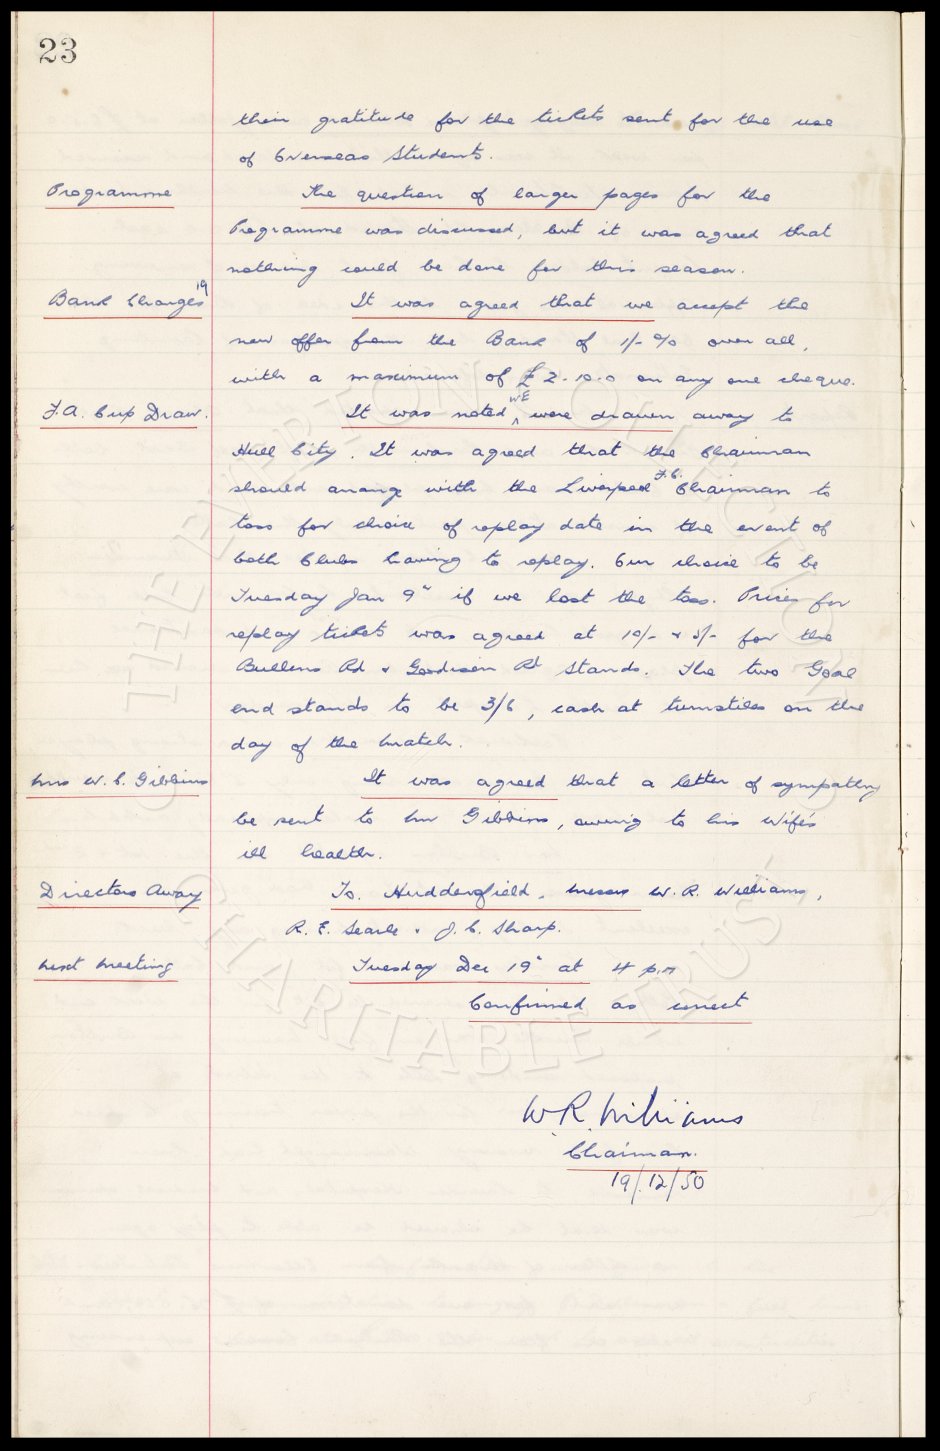 23
their gratitude for the tickets sent for the use
of Overseas Students.
Programme The question of larger pages for the
Programme was discussed, but it was agreed that
nothing could be done for this season.
Bank Charges 19 It was agreed that we accept the
new offer from the Bank of 1/- % over all,
with a maximum of £2-10-0 on any one cheque.
F.A. Cup Draw. It was noted WE were drawn away to
Hull City. It was agreed that the Chairman
should arrange with the Liverpool F.C. Chairman to
toss for choice of replay date in the event of
both Clubs having to replay. Our choice to be
Tuesday Jan 9" if we lost the toss. Prices for
replay tickets was agreed at 10/- & 5/- for the
Bullens Rd & Goodison Rd Stands. The two Goal
end stands to be 3/6, cash at turnstiles on the
day of the Match.
Mrs W. C. Gibbins It was agreed that a letter of sympathy
be sent to Mr Gibbins, owing to his Wife's
ill health.
Directors Away To. Huddersfield. Messrs W. R. Williams,
R. E. Searle & J. C. Sharp.
Next Meeting Tuesday Dec 19" at 4 p.m
Confirmed as correct
W.R. Williams
Chairman.
19/12/50
© THE EVERTON COLLECTION
CHARITABLE TRUST